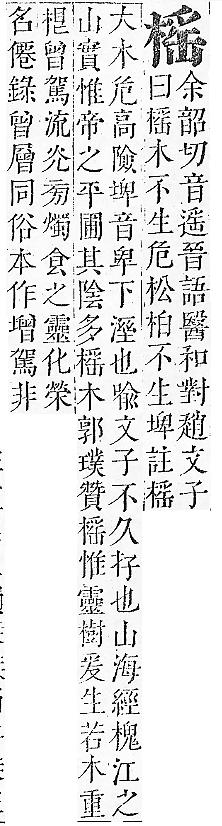 榣
余韶切音遥晉語醫和對趙文子
曰榣木不生危松柏不生埤註榣
大木危高險埤音卑下溼也喻文子不久存也山海經槐江之
山實惟帝之平圃其陰多榣木郭璞贊榣惟靈樹爰生若木重
根曾駕流炗㫄燭食之靈化榮
名僊錄曾層同俗本作增駕非